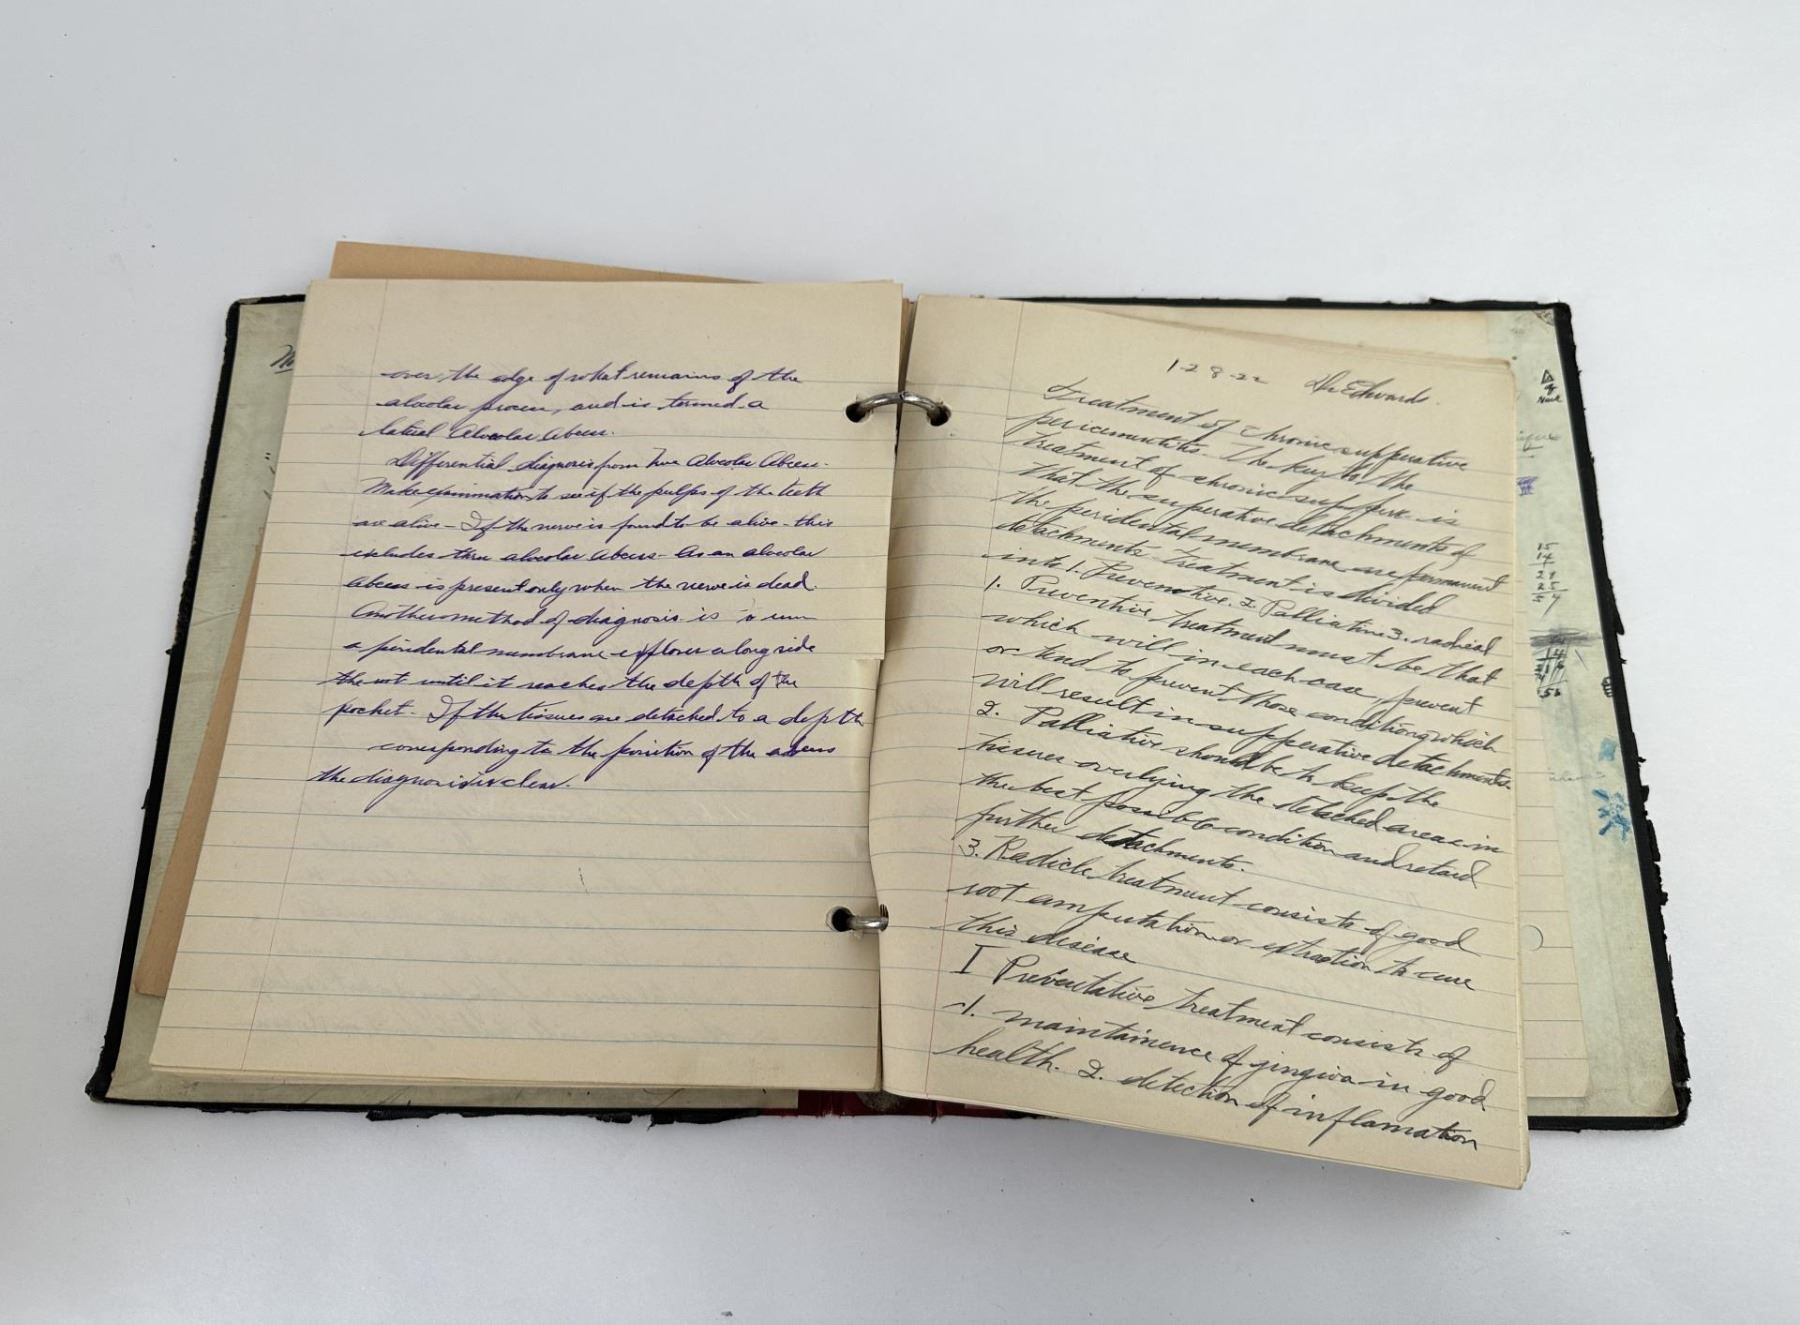 over the edge of what remains of the
alveolar process, and is termed a
lateral Alveolar Abcess.
Differential diagnosis from true Alveolar Abcess.
Make examination to see if the pulps of the teeth
are alive - If the nerve is found to be alive - this
excludes true alveolar abcess - as an alveolar
abcess is present only when the nerve is dead.
Another method of diagnosis is to run
a peridental membrane explorer along side
the root until it reaches the depth of the
pocket. If the tissues are detached to a depth
corresponding to the position of the abcess
the diagnosis is clear.
1-28-22 Dr Edwards.
Treatment of chronic suppurative
pericementitis. The key to the
treatment of chronic sup. peri. is
that the suppurative detachments of
the peridental membrane are permanent
detachments. Treatment is divided
into 1. Preventive. 2. Palliative 3. radical
1. Preventive treatment must be that
which will in each case, prevent
or tend to prevent those conditions which
will result in suppurative detachments.
2. Palliative should be to keep the
tissues overlying the detached areas in
the best possible condition and retard
further detachments.
3. Radicle treatment consists of good
root amputation or extraction to cure
this disease
I Preventative treatment consists of
1. maintainence of gingiva in good
health. 2. detection of inflamation
15
14
21
25
54
14
56